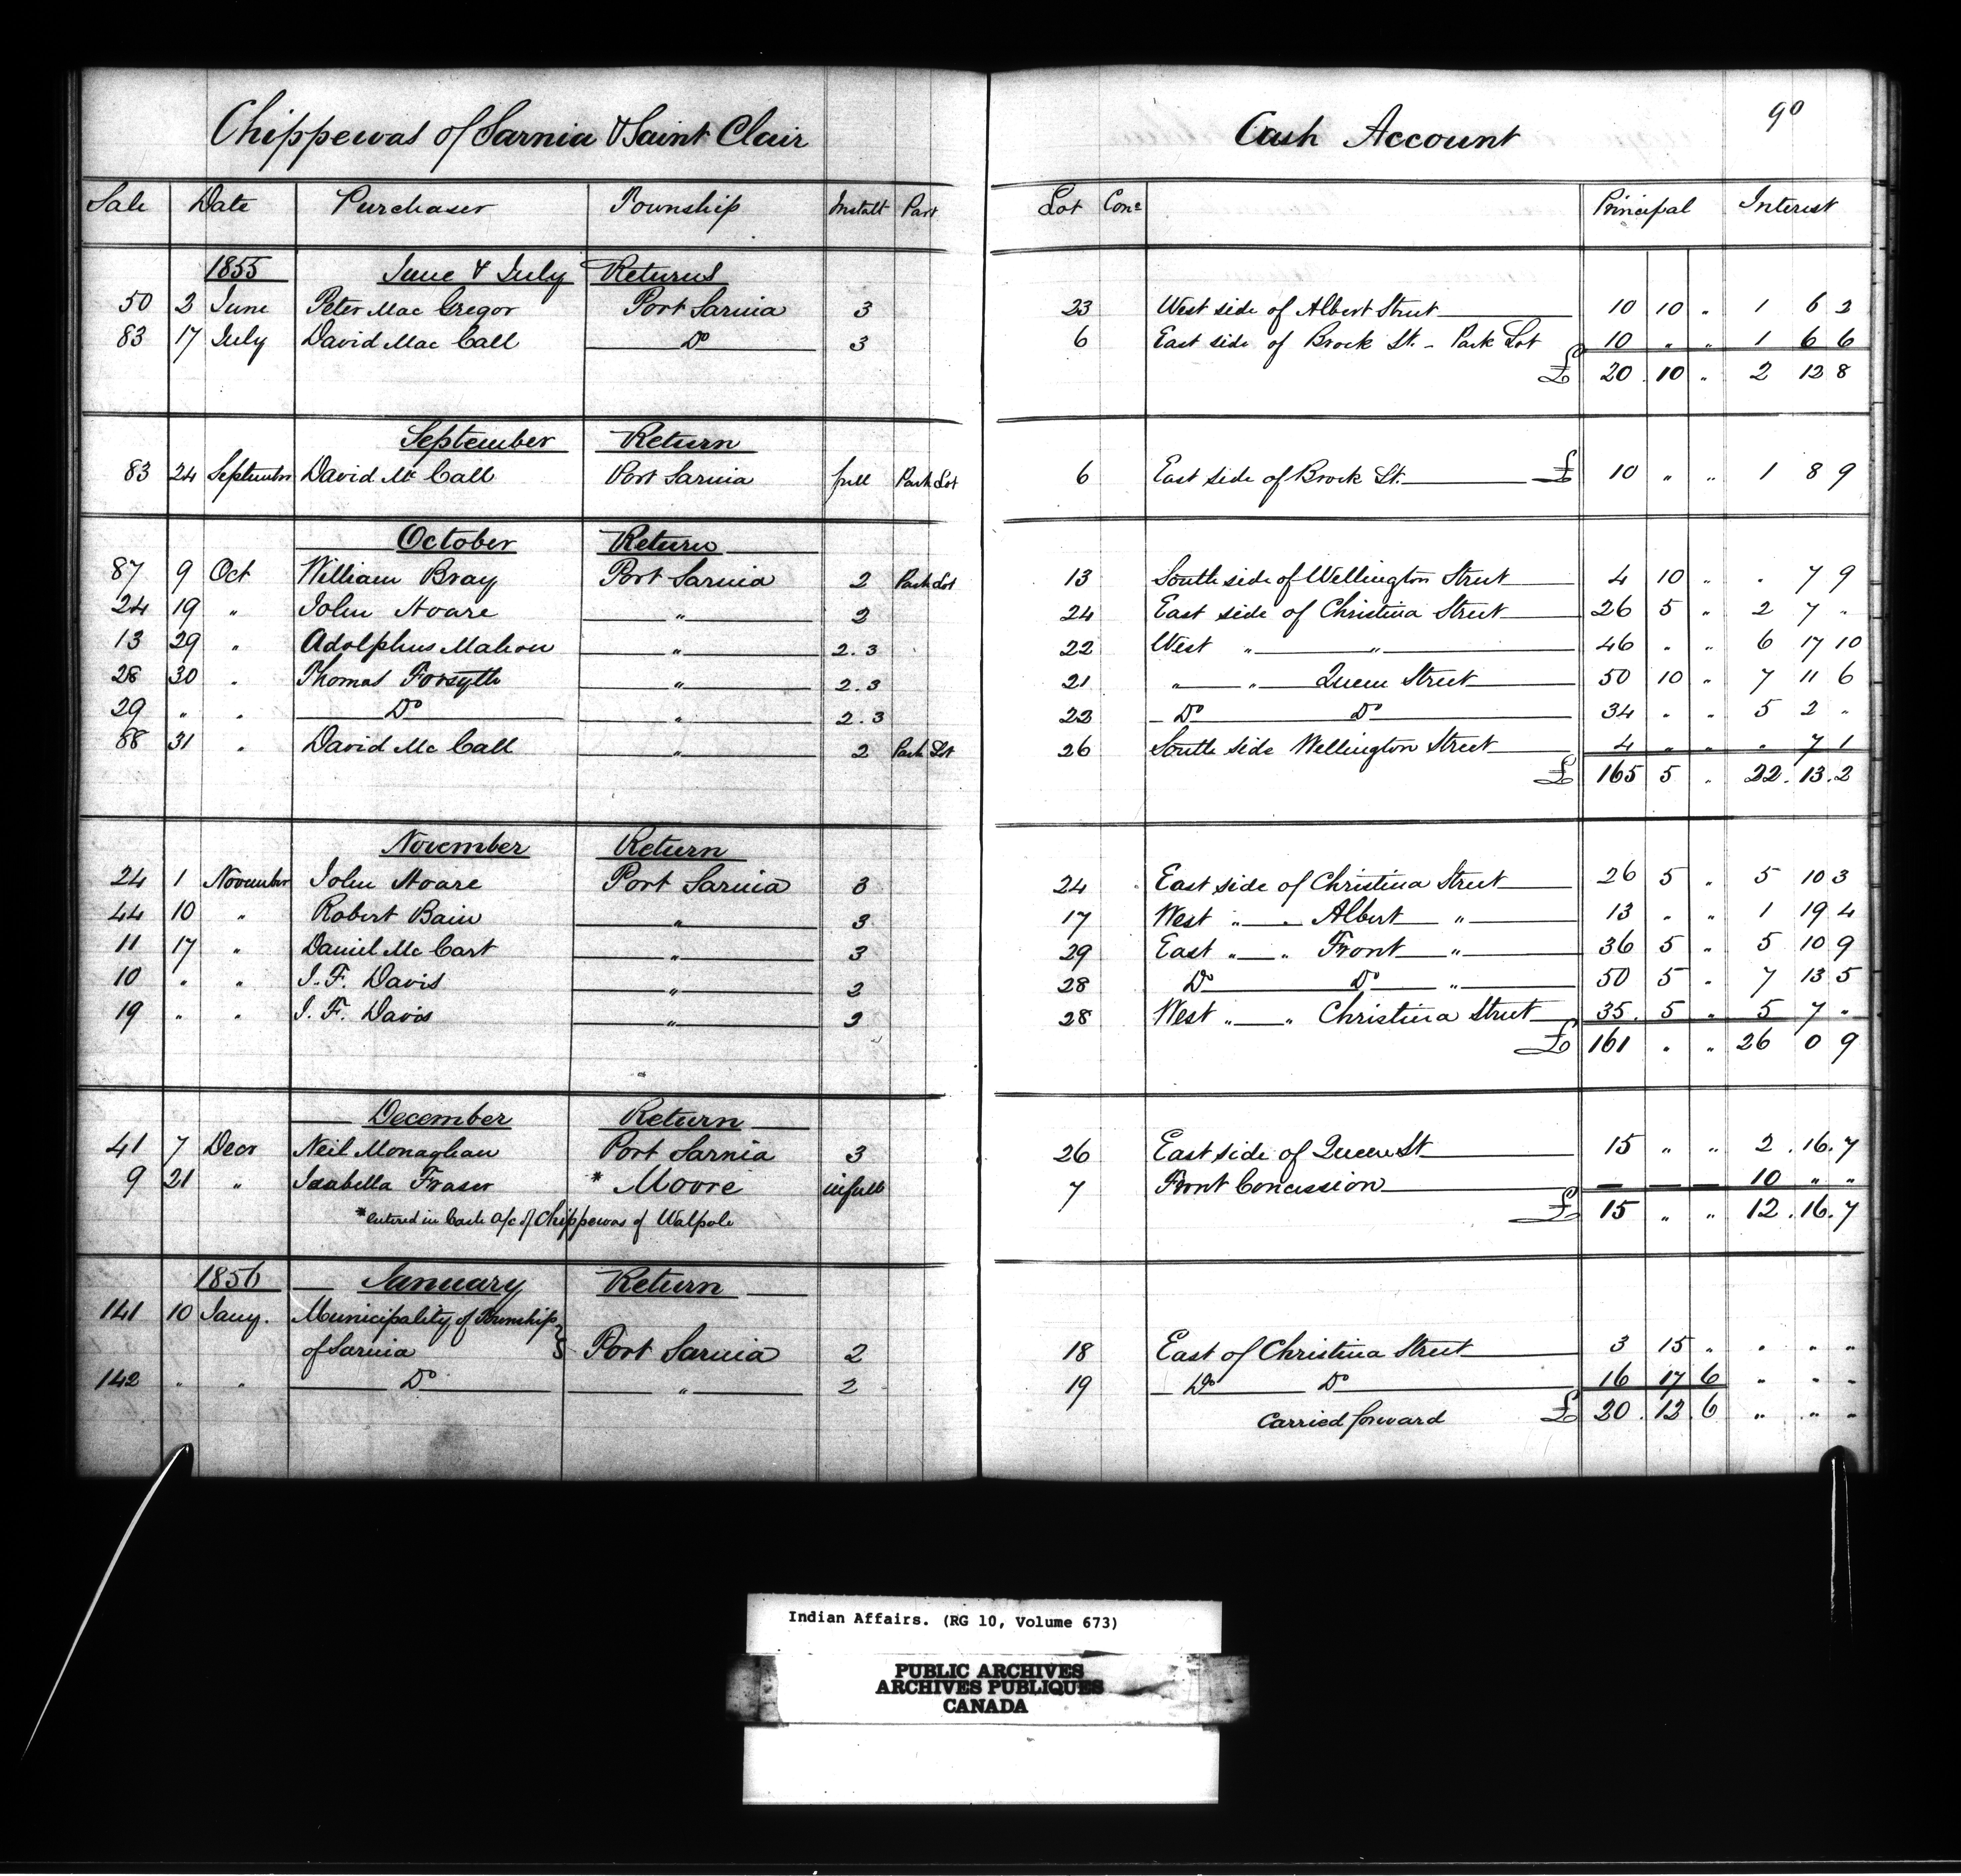 Chippewas of Sarnia & Saint Clair Cash Account 90
Sale Date Purchaser Township Instalt Part Lot Conc Principal Interest
1855 June & July Returns
50 2 June Peter Mac Gregor Port Sarnia 3 23 West side of Albert Street 10 10 " 1 6 2
83 17 July David Mac Call Do 3 6 East side of Brock St. - Park Lot 10 " " 1 6 6
£ 20 . 10 " 2 12 8
September Return
83 24 September David Mc Call Port Sarnia full Park Lot 6 East side of Brock St. £ 10 " " 1 8 9
October Return
87 9 Oct William Bray Port Sarnia 2 Park Lot 13 South side of Wellington Street 4 10 " " 7 9
24 19 " John Hoare " 2 24 East side of Christina Street 26 5 " 2 7 "
13 29 " Adolphus Mahon " 2.3 22 West " " 46 " " 6 17 10
28 30 " Thomas Forsyth " 2.3 21 " " Queen Street 50 10 " 7 11 6
29 " " Do " 2.3 22 Do Do 34 " " 5 2 "
88 31 " David Mc Call " 2 Park Lot 26 South side Wellington Street 4 " " " 7 1
£ 165 5 " 22 . 13 . 2
November Return
24 1 November John Hoare Port Sarnia 3 24 East side of Christina Street 26 5 " 5 10 3
44 10 " Robert Bain " 3 17 West " " Albert " 13 " " 1 19 4
11 17 " Daniel Mc Cart " 3 29 East " " Front " 36 5 " 5 10 9
10 " " J. F. Davis " 2 28 Do Do " 50 5 " 7 13 5
19 " " J. F. Davis " 2 28 West " " Christina Street 35 . 5 " 5 7 "
£ 161 " " 26 0 9
December Return
41 7 Decr Neil Monaghan Port Sarnia 3 26 East side of Queen St 15 " " 2 . 16 . 7
9 21 " Isabella Fraser * Moore in full 7 Front Concession — — — 10 " "
* entered in Cash a/c of Chippewas of Walpole £ 15 " " 12 . 16 . 7
1856 January Return
141 10 Jany. Municipality of Township
of Sarnia } Port Sarnia 2 18 East of Christina Street 3 15 " " " "
142 " " Do " 2 19 Do Do 16 17 6 " " "
Carried forward £ 20 . 12 6 " " "
Indian Affairs. (RG 10, Volume 673)
PUBLIC ARCHIVES
ARCHIVES PUBLIQUES
CANADA